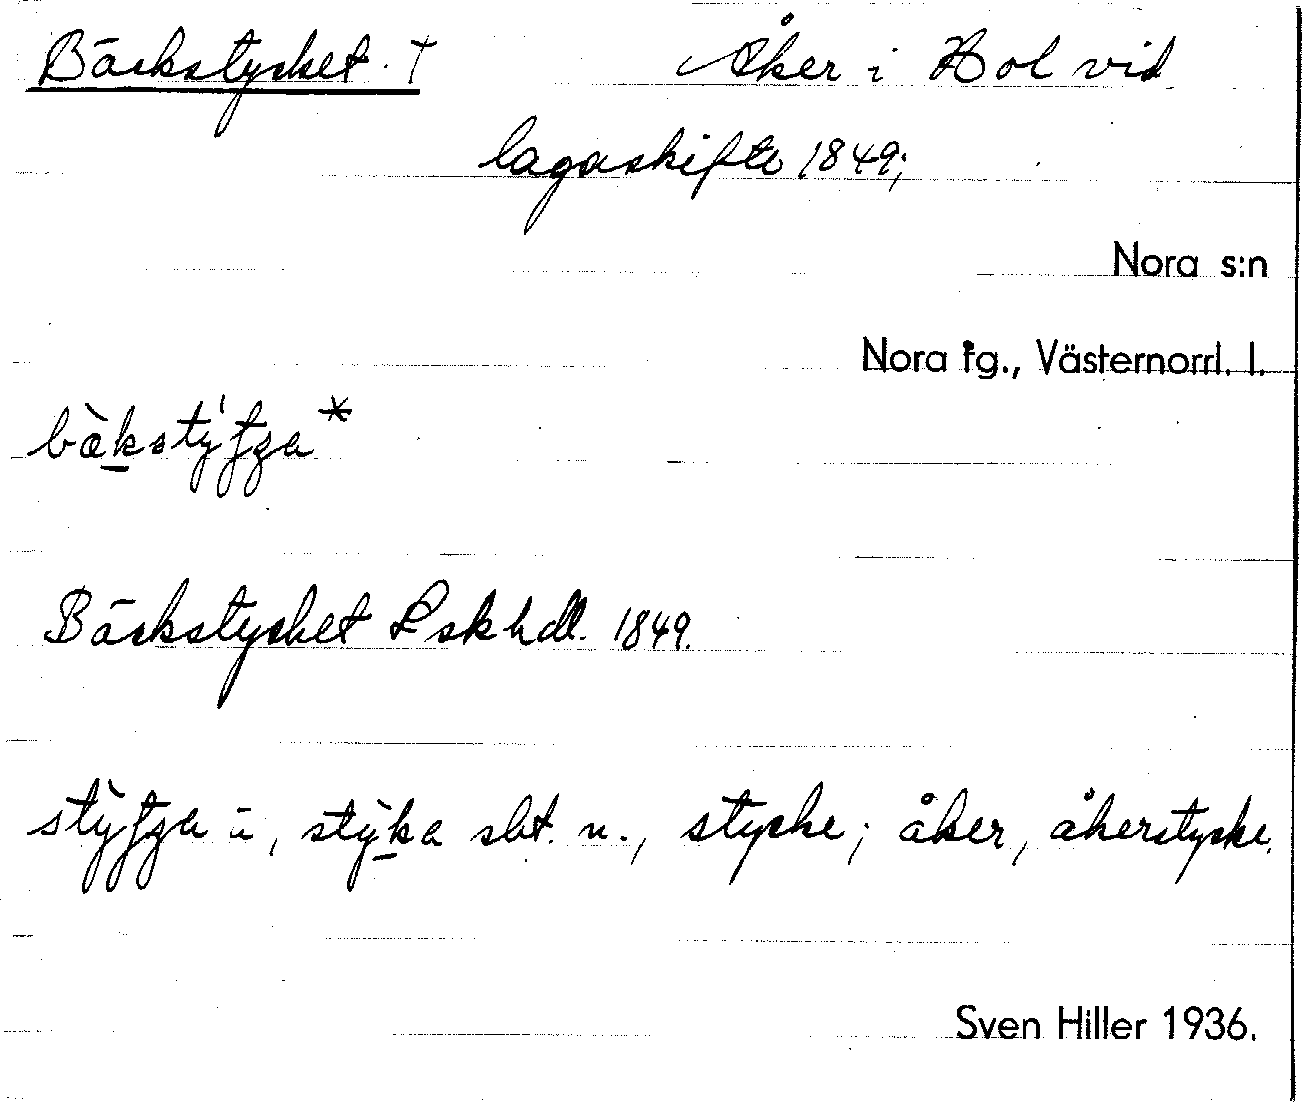 Bäckstycket. † Åker i Hol vid
lagaskifte 1849;
Nora s:n
Nora tg., Västernorrl. l.
Bäckstycket Lskhdl. 1849.
slät. n., stycke; åker, åkerstycke.
Sven Hiller 1936.